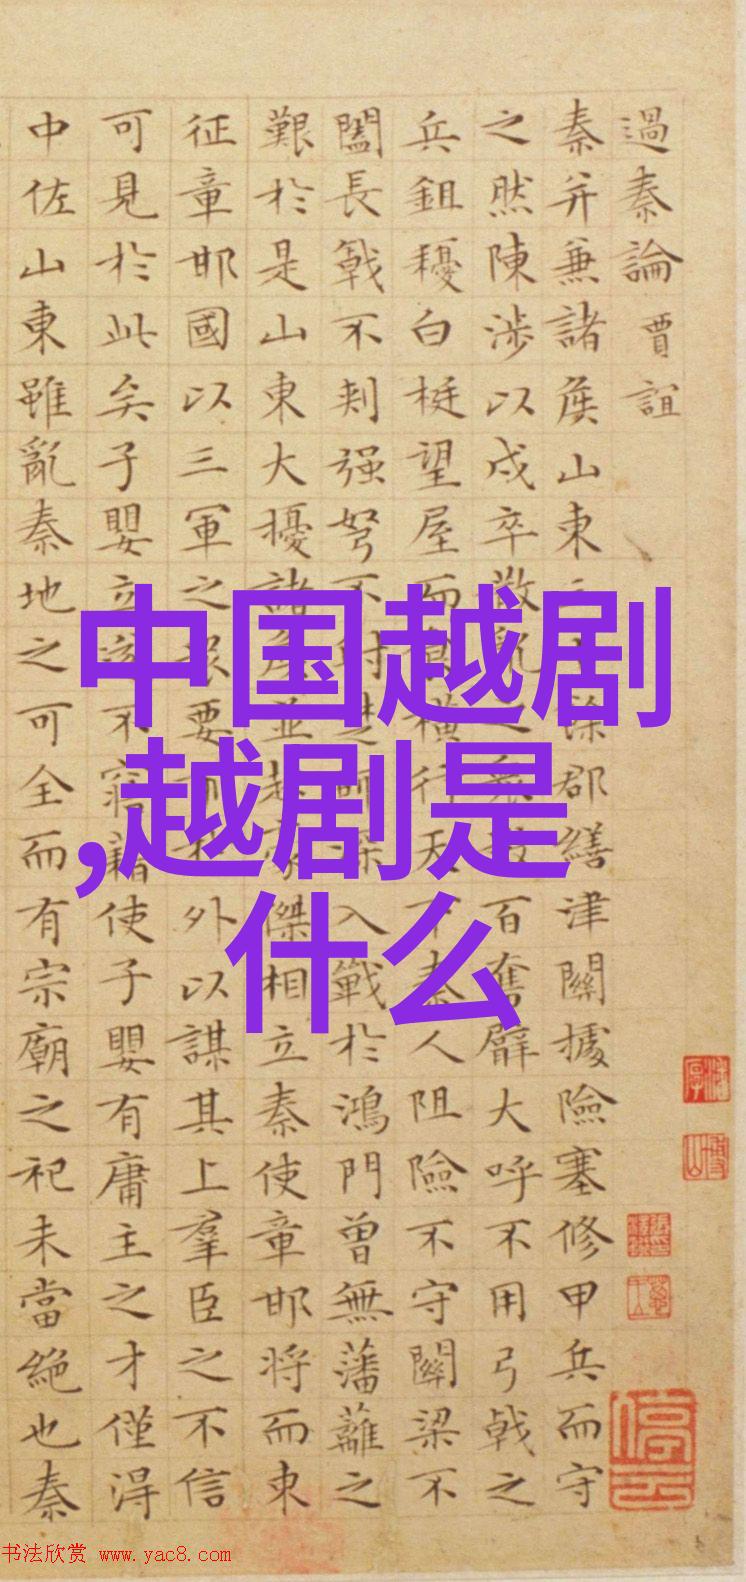 過秦論 賈誼
秦并兼諸侯山東
除郡繕津關據險塞修甲兵而守
之然陳涉以戍卒散亂之眾
百奮臂大呼不用弓戟之
兵鉏耰白梃望屋而
橫行天下秦人阻險不守關梁不
闔長戟不刺强弩不射楚師深入戰於鴻門曾無藩蘺之
艱於是山東大擾諸侯並起豪傑相立秦使章邯將而東
征章邯國以三軍之眾要
外以謀其上羣臣之不信
可見於此矣子嬰立
不寤藉使子嬰有庸主之才僅得
中佐山東雖亂秦地之可全而有宗廟之祀未當絶也秦
中国越剧
,越剧是
什么
书法欣赏 www.yac8.com